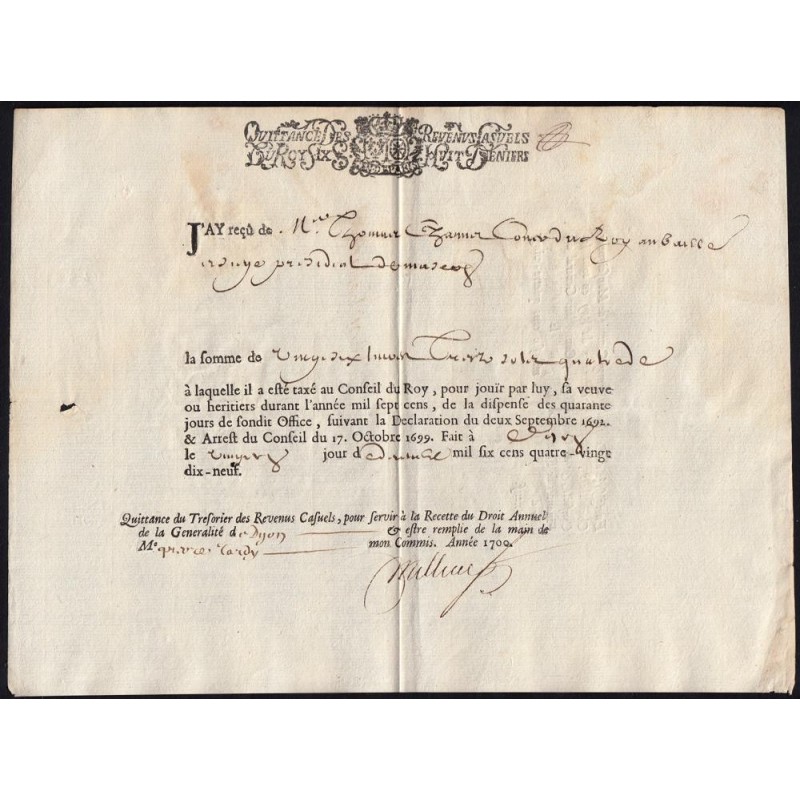 QUITTANCE DES REVENUS CASUELS
DU ROY SIX S HUIT DENIERS
J'AY reçû de Mre Thomas Coner du Roy au bailla
presidial de
la somme de vingt six livres treize solz quatre de
à laquelle il a esté taxé au Conseil du Roy, pour joüir par luy, sa veuve
ou heritiers durant l'année mil sept cens, de la dispense des quarante
jours de sondit Office, suivant la Declaration du deux Septembre 1692.
& Arrest du Conseil du 17. Octobre 1699. Fait à Dijon
le jour de decembre mil six cens quatre-vingt
dix-neuf.
Quittance du Tresorier des Revenus Casuels, pour servir à la Recette du Droit Annuel
de la Generalité de Dijon & estre remplie de la main de
Me pierre tardy mon Commis. Année 1700.